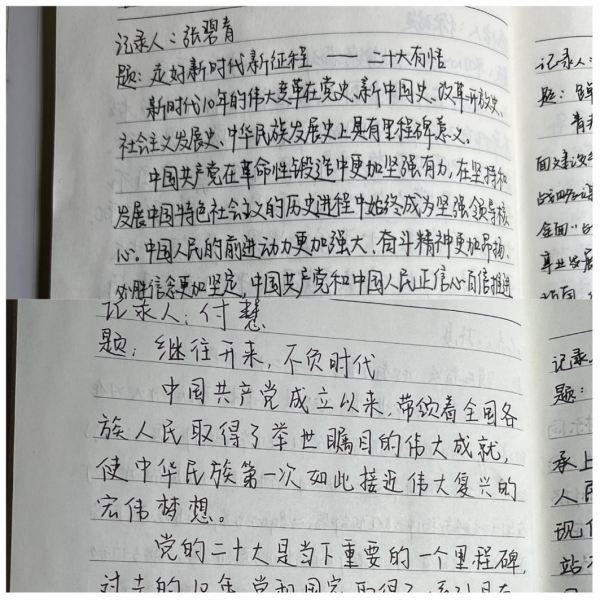 记录人：张碧青
题：走好新时代新征程——二十大有悟
新时代10年的伟大变革在党史、新中国史、改革开放史、
社会主义发展史、中华民族发展史上具有里程碑意义。
中国共产党在革命性锻造中更加坚强有力，在坚持和
发展中国特色社会主义的历史进程中始终成为坚强领导核
心。中国人民的前进动力更加强大、奋斗精神更加昂扬、
必胜信念更加坚定，中国共产党和中国人民正信心百倍推进
记录人：付慧
题：继往开来，不负时代
中国共产党成立以来，带领着全国各
族人民取得了举世瞩目的伟大成就，
使中华民族第一次如此接近伟大复兴的
宏伟梦想。
党的二十大是当下重要的一个里程碑，
过去的10年，党和国家取得了一系列具有
记录人：
题：
面建设
全面
事业发展
记录
题：
承上
人民
现代
站